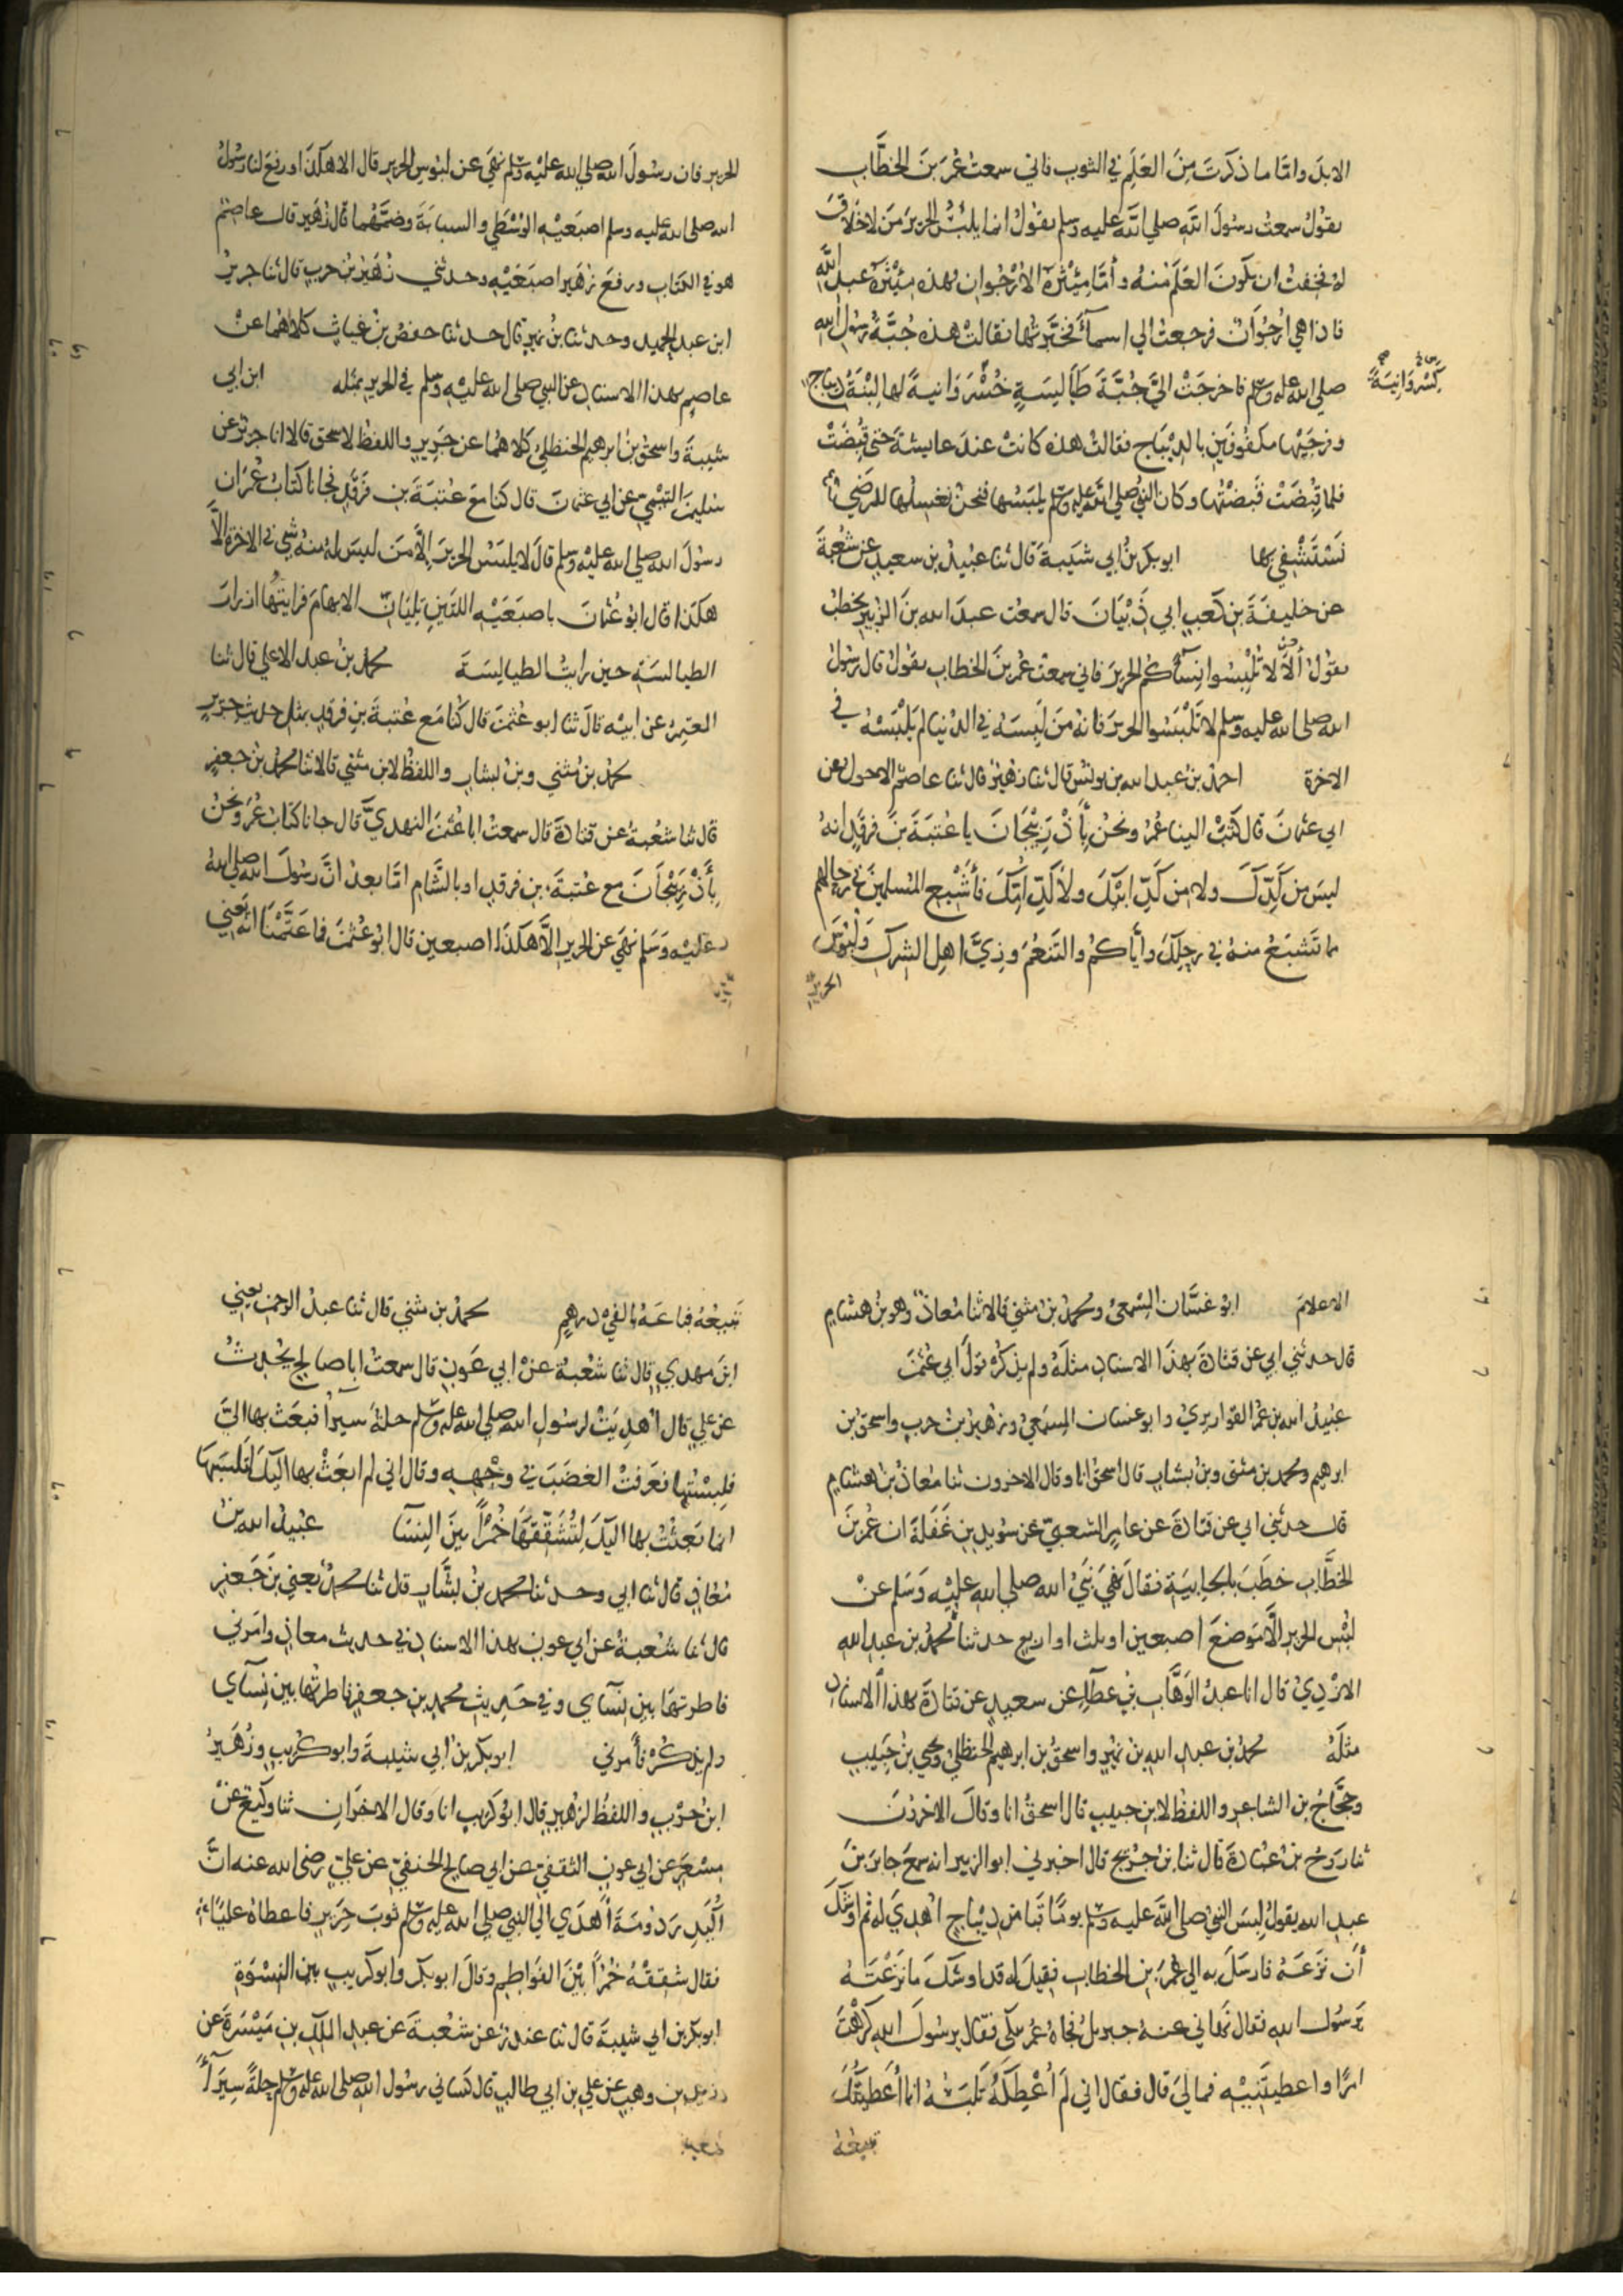 الابل واما ما ذكرت من العلم في الثوب فاني سمعت عمر بن الخطاب
يقول سمعت رسول الله صلى الله عليه وسلم يقول انما يلبس الحرير من لا خلاق
له فخفت ان يكون العلم منه وأما مئثرة الارجوان فهذه مئثرة عبد الله
فاذا هي ارجوان فرجعت الي اسمآ فخبرتها فقالت هذه جبة رسول الله
صلى الله عليه وسلم فاخرجت اليّ جبة طيالسة خسروانية لها لبنة ديباج
كسروانية
وفرجيها مكفوفين بالديباج فقالت هذه كانت عند عايشة حتى قبضت
فلما قبضت قبضتها وكان النبي صلى الله عليه وسلم يلبسها فنحن نغسلها للمرضي
نستشفي بها ابو بكر بن ابي شيبة قال ثنا عبيد بن سعيد عن شعبة
عن خليفة بن كعب ابي ذبيان قال سمعت عبد الله بن الزبير يخطب
يقول ألا لا تلبسوا نسآكم الحرير فاني سمعت عمر بن الخطاب يقول قال رسول
الله صلى الله عليه وسلم لا تلبسوا الحرير فانه من لبسه في الدنيا لم يلبسه في
الاخرة احمد بن عبد الله بن يونس قال ثنا زهير قال ثنا عاصم الاحول عن
ابي عثمان قال كتب الينا عمر ونحن بأذربيجان يا عتبة بن فرقد انه
ليس من كدّك ولا من كدّ ابيك ولا كدّ امك فأشبع المسلمين في رحالهم
مما تشبع منه في رحلك وأياكم والتنعم وزيّ اهل الشرك ولبوس
الحرير
الحرير فان رسول الله صلى الله عليه وسلم نهي عن لبوس الحرير قال الا هكذا ورفع لنا رسول
الله صلى الله عليه وسلم اصبعيه الوسطي والسبابة وضمّهما قال زهير قال عاصم
هو في الكتاب ورفع زهير اصبعيه وحدثني زهير بن حرب قال ثنا جرير
ابن عبد الحميد وحدثنا بن نمير قال حدثنا حفص بن غياث كلاهما عن
عاصم بهذا الاسناد عن النبي صلى الله عليه وسلم في الحرير بمثله ابن ابي
شيبة واسحق بن ابرهيم الحنظلي كلاهما عن جرير واللفظ لاسحق قالا انا جرير عن
سليمن التيمي عن ابي عثمان قال كنا مع عتبة بن فرقد فجانا كتاب عمر ان
رسول الله صلى الله عليه وسلم قال لا يلبس الحرير إلا من ليس له منه شي في الاخرة الا
هكذا قال ابو عثمان باصبعيه اللتين تليان الابهام فرايتها ازرار
الطيالسة حين رايت الطيالسة محمد بن عبد الاعلي قال ثنا
المعتمر عن ابيه قال ثنا ابو عثمن قال كنا مع عتبة بن فرقد بمثل حديث جرير
محمد بن مثني وبن بشار واللفظ لابن مثني قالا ثنا محمد بن جعفر
قال ثنا شعبة عن قتادة قال سمعت ابا عثمن النهديّ قال جانا كتاب عمر ونحن
بأذربيجان مع عتبة بن فرقد او بالشام اما بعد انّ رسول الله صلى الله
عليه وسلم نهي عن الحرير الا هكذا اصبعين قال ابو عثمن فما عتّمنا انه يعني
الاعلام ابو غسان المسمعي ومحمد بن مثني قالا ثنا معاذ وهو بن هشام
قال حدثني ابي عن قتادة بهذا الاسناد مثله ولم يذكر قول ابي عثمن
عبيد الله بن عمر القواريري وابو غسان المسمعي وزهير بن حرب واسحق بن
ابرهيم ومحمد بن مثنى وبن بشار قال اسحق انا وقال الاخرون ثنا معاذ بن هشام
قال حدثني ابي عن قتادة عن عامر الشعبي عن سويد بن غفلة ان عمر بن
الخطاب خطب بالجابية فقال نهي نبي الله صلى الله عليه وسلم عن
لبس الحرير الا موضع اصبعين او ثلث او اربع حدثنا محمد بن عبد الله
الازدي قال انا عبد الوهاب بن عطآ عن سعيد عن قتادة بهذا الاسناد
مثله محمد بن عبد الله بن نمير واسحق بن ابرهيم الحنظلي ويحي بن حبيب
وحجاج بن الشاعر واللفظ لابن حبيب قال اسحق انا وقال الاخرون
ثنا روح بن عبادة قال ثنا بن جريج قال اخبرني ابو الزبير انه سمع جابر بن
عبد الله يقول لبس النبي صلى الله عليه وسلم يوما قبا من ديباج اهدي له ثم اوشك
أن نزعه فارسل به الي عمر بن الخطاب فقيل له قد اوشك ما نزعته
يرسول الله فقال نهاني عنه جبريل فجاه عمر يبكي فقال يرسول الله كرهت
امرًا واعطيتنيه فمالي قال فقال اني لم أعطكه تلبسه انما أعطيتك
تبيعه
تبيعه فباعه بالفي درهم محمد بن مثني قال ثنا عبد الرحمن يعني
ابن مهدي قال ثنا شعبة عن ابي عون قال سمعت ابا صالح يحدث
عن علي قال اهديت لرسول الله صلى الله عليه وسلم حلة سيرا فبعث بها اليّ
فلبستها فعرفت الغضب في وجهه وقال اني لم ابعث بها اليك لتلبسها
انما بعثت بها اليك لتشققها خمرًا بين النسا عبيد الله بن
معاذ قال ثنا ابي وحدثنا محمد بن بشّار قال ثنا محمد يعني بن جعفر
قال ثنا شعبة عن ابي عون بهذا الاسناد في حديث معاذ وامرني
فاطرتها بين نسآي وفي حديث محمد بن جعفر فاطرتها بين نسآي
ولم يذكر فأمرني ابو بكر بن ابي شيبة وابو كريب وزهير
ابن حرب واللفظ لزهير قال ابو كريب انا وقال الاخران ثنا وكيع عن
مسعر عن ابي عون الثقفي عن ابي صالح الحنفي عن علي رضى الله عنه انّ
أكيدر دومة أهدي الي النبي صلى الله عليه وسلم ثوب حرير فاعطاه عليًا
فقال شققه خمرًا بين الفواطم وقال ابو بكر وابو كريب بين النسوة
ابو بكر بن ابي شيبة قال ثنا غندر عن شعبة عن عبد الملك بن ميسرة عن
زيد بن وهب عن علي بن ابي طالب قال كساني رسول الله صلى الله عليه وسلم حلة سيرآ